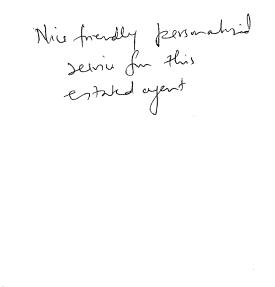 Nice friendly personalised
service from this
estated agent